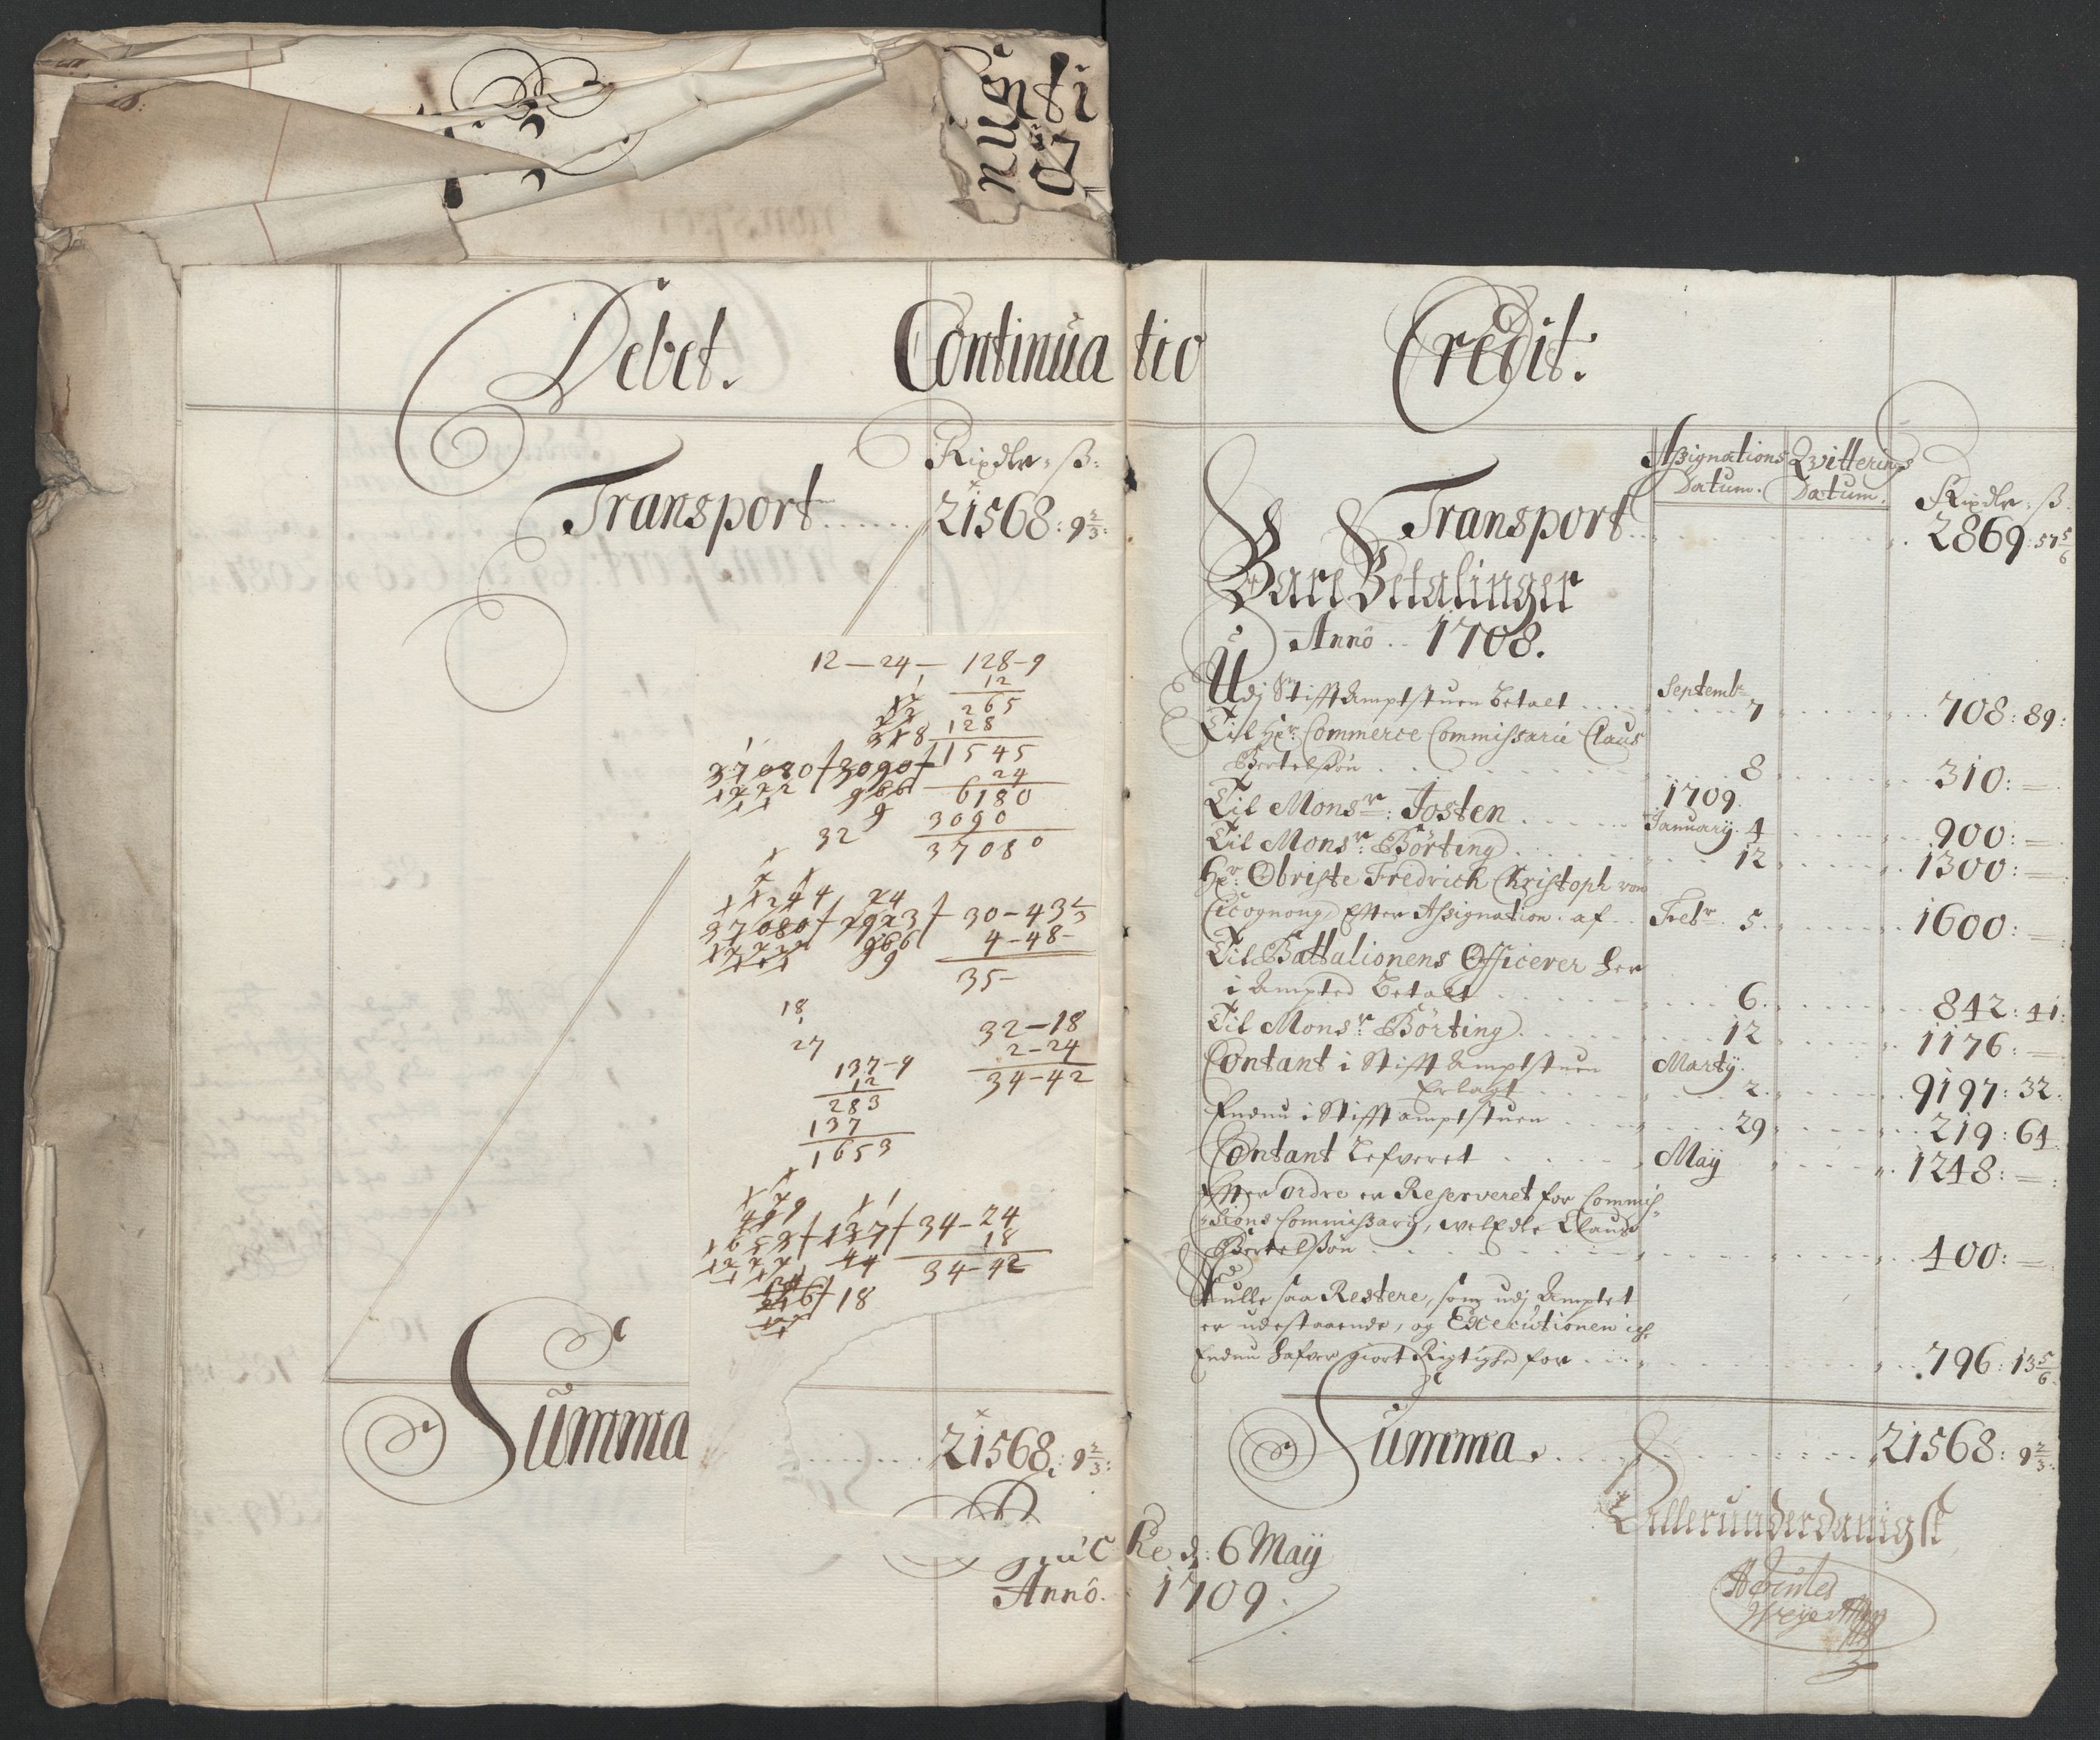 Debet.
Continuatio
Credit.
Rixdlr: ß:
Transport ...... 21568: 9 2/3:
12 — 24 — 128 - 9
12
265
128
1545
24
6180
3090
37080
32
30 - 43 1/3
4 - 48 -
35 -
18
27
32 - 18
2 - 24
34 - 42
137 - 9
12
283
137
1653
34 - 24
18
34 - 42
18
Summa ...... 21568: 9 2/3:
Assignations Datum.
Qvitterings Datum.
Rixdlr: ß
Transport ...... 2869: 57 5/6
Bare Betalinger
Anno .. 1708.
Udj StifftAmptstuen betalt .... Septembr 7 .... 708: 89:
Til Hr: Commerce Commissarie Claus
Bertelssøn .... 8 .... 310: —
1709.
Til Monsr: Josten .... January. 4 .... 900: —
Til Monsr: Börting .... 12 .... 1300: —
Hr: Obriste Fredrich Christoph von
Cicognong, Efter Assignation af .. Febr. 5. .... 1600: —
Til Battalionens Officerer her
i Ampted betalt .... 6. .... 842: 41:
Til Monsr: Börting .... 12 .... 1176: —
Contant i StifftAmptstuen
Erlagt .... Marty. 2. .... 9197: 32.
Endnu i Stifftamptstuen .... 29 .... 219: 64
Contant Lefveret .... Maÿ .... 1248: —
Efter ordre er Reserveret for Commis-
sions Commissarÿ, welEdle Claus
Bertelssøn .... 400: —
Skulle saa Restere, som udj Amptet
er udestaaende, og Execcutionen
Endnu hafver giort Rigtighed for .... 796: 13 5/6
Summa. .... 21568: 9 2/3:
d: 6 Maÿ
Anno. 1709.
Allerunderdanigst